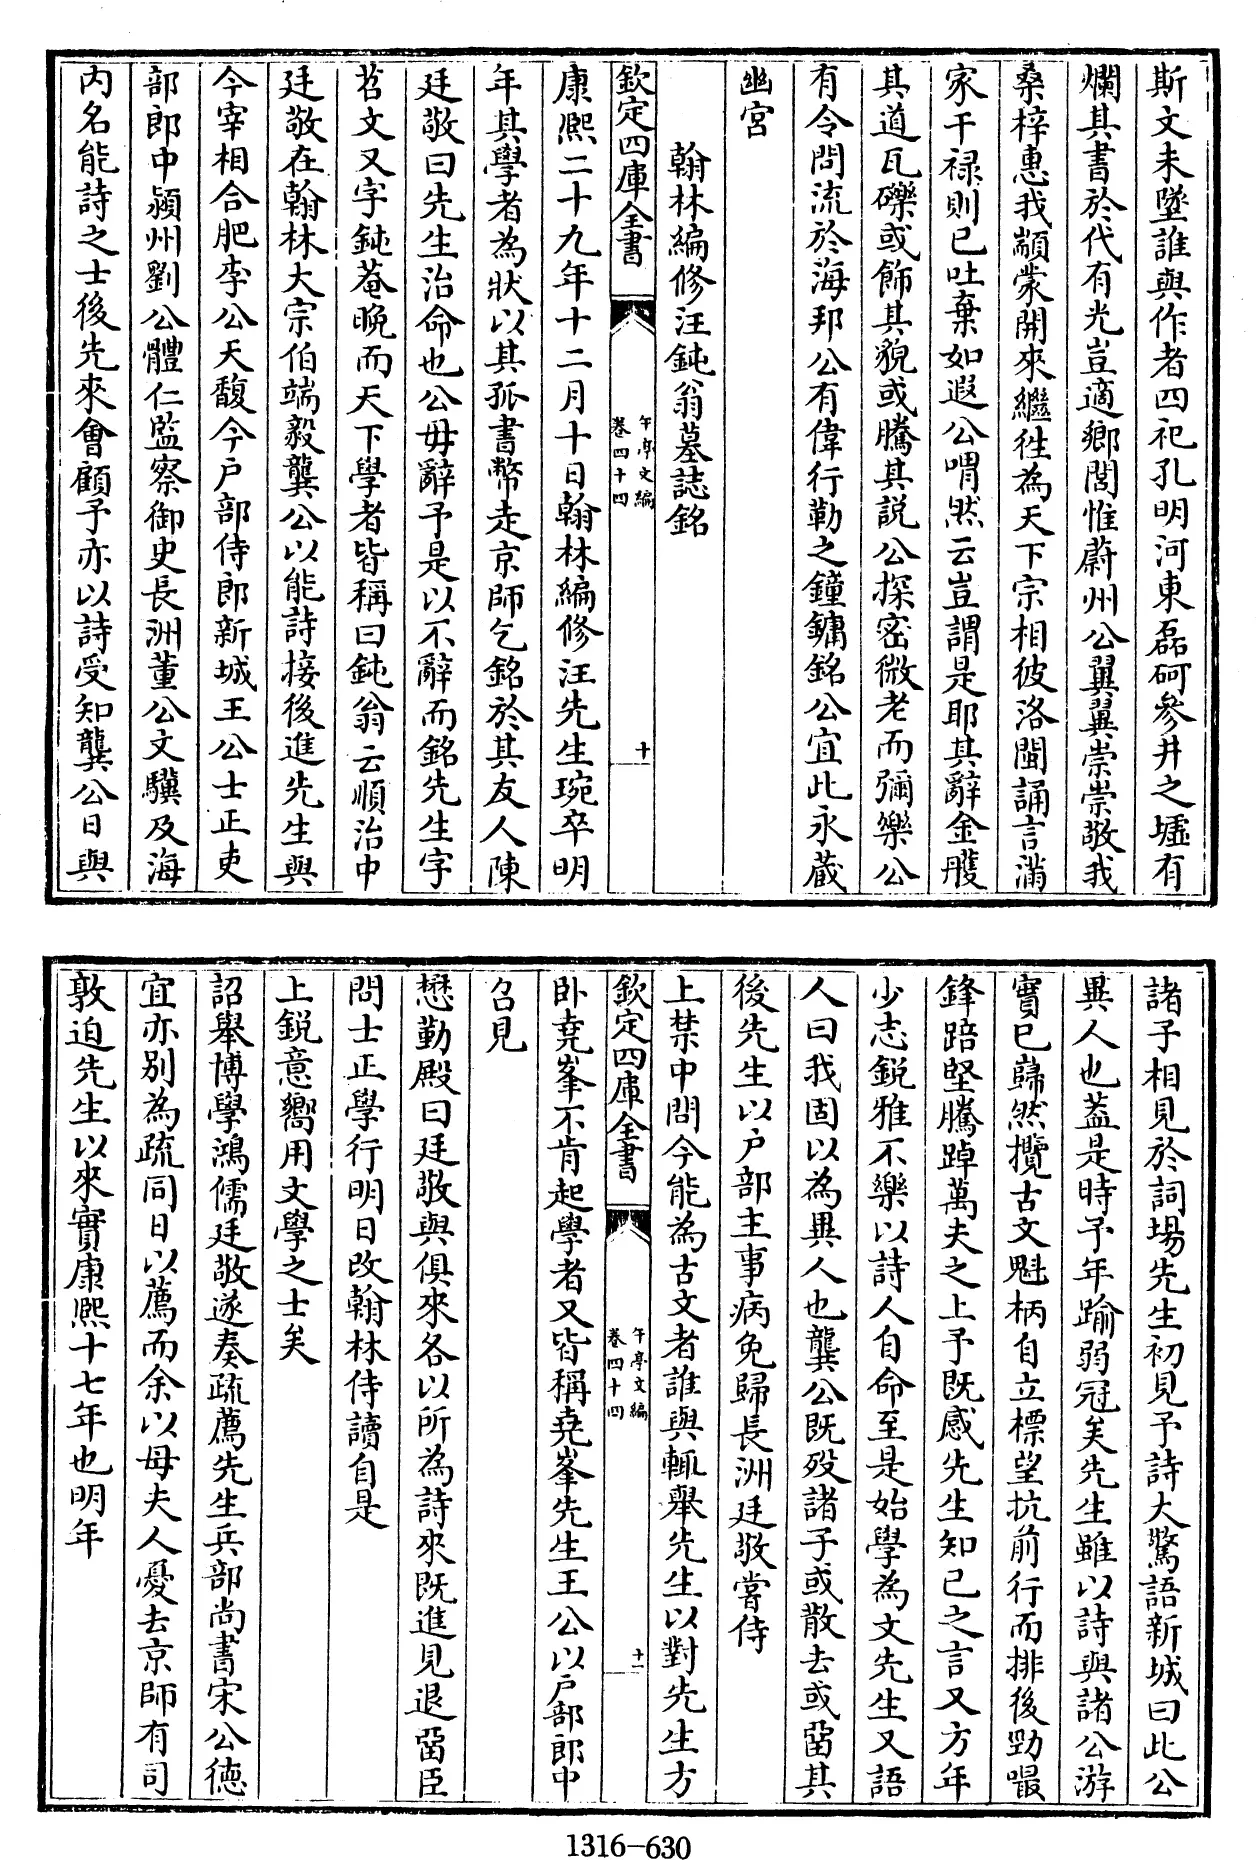 斯文未墜誰與作者四祀孔明河東磊砢參井之墟有
爛其書於代有光豈適鄉閭惟蔚州公翼翼崇崇敬我
桑梓惠我顓蒙開來繼徃為天下宗相彼洛閩誦言滿
家干禄則已吐棄如遐公喟然云豈謂是耶其辭金雘
其道瓦礫或飾其貌或騰其説公探密微老而彌樂公
有令問流於海邦公有偉行勒之鐘鏞銘公宜此永藏
幽宮
翰林編修汪鈍翁墓誌銘
欽定四庫全書
午亭文編
卷四十四
十
康熙二十九年十二月十日翰林編修汪先生琬卒明
年其學者為狀以其孤書幣走京師乞銘於其友人陳
廷敬曰先生治命也公毋辭予是以不辭而銘先生字
苕文又字鈍菴晚而天下學者皆稱曰鈍翁云順治中
廷敬在翰林大宗伯端毅龔公以能詩接後進先生與
今宰相合肥李公天馥今户部侍郎新城王公士正吏
部郎中潁州劉公體仁監察御史長洲董公文驥及海
内名能詩之士後先來會顧予亦以詩受知龔公日與
諸子相見於詞場先生初見予詩大驚語新城曰此公
異人也葢是時予年踰弱冠矣先生雖以詩與諸公游
實已巋然攬古文魁柄自立標望抗前行而排後勁嘬
鋒踣堅騰踔萬夫之上予既感先生知己之言又方年
少志鋭雅不樂以詩人自命至是始學為文先生又語
人曰我固以為異人也龔公既歿諸子或散去或留其
後先生以户部主事病免歸長洲廷敬嘗侍
上禁中問今能為古文者誰與輒舉先生以對先生方
欽定四庫全書
午亭文編
卷四十四
十一
卧堯峯不肯起學者又皆稱堯峯先生王公以户部郎中
召見
懋勤殿曰廷敬與俱來各以所為詩來既進見退留臣
問士正學行明日改翰林侍讀自是
上鋭意嚮用文學之士矣
詔舉博學鴻儒廷敬遂奏疏薦先生兵部尚書宋公德
宜亦別為疏同日以薦而余以母夫人憂去京師有司
敦迫先生以來實康熙十七年也明年
1316-630